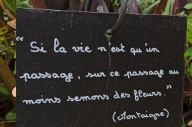 "Si la vie n'est qu'un
passage, sur ce passage au
moins semons des fleurs."
(Montaigne)